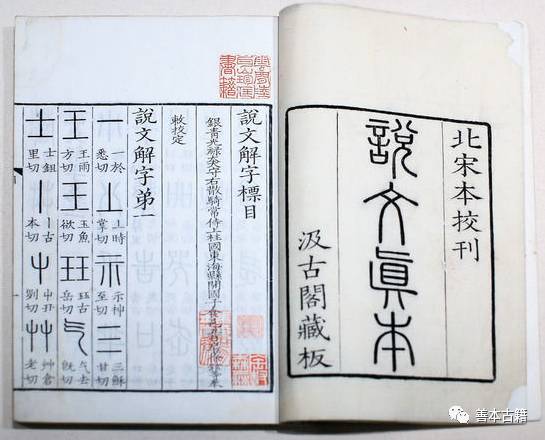 北宋本校刊
說文眞本
汲古閣藏板
說文解字標目
銀青光祿大夫守右散騎常侍上柱國東海縣開國子食邑五百戶臣徐鉉等奉
敕校定
說文解字第一
一 一於悉切 丄 上時掌切 示 示神至切 三 三穌甘切
王 王雨方切 王 玉魚欲切 玨 玨古岳切 气 气去旣切
士 士鉏里切 丨 丨古本切 屮 屮丑切 艸 艸倉老切
書籍
善本古籍